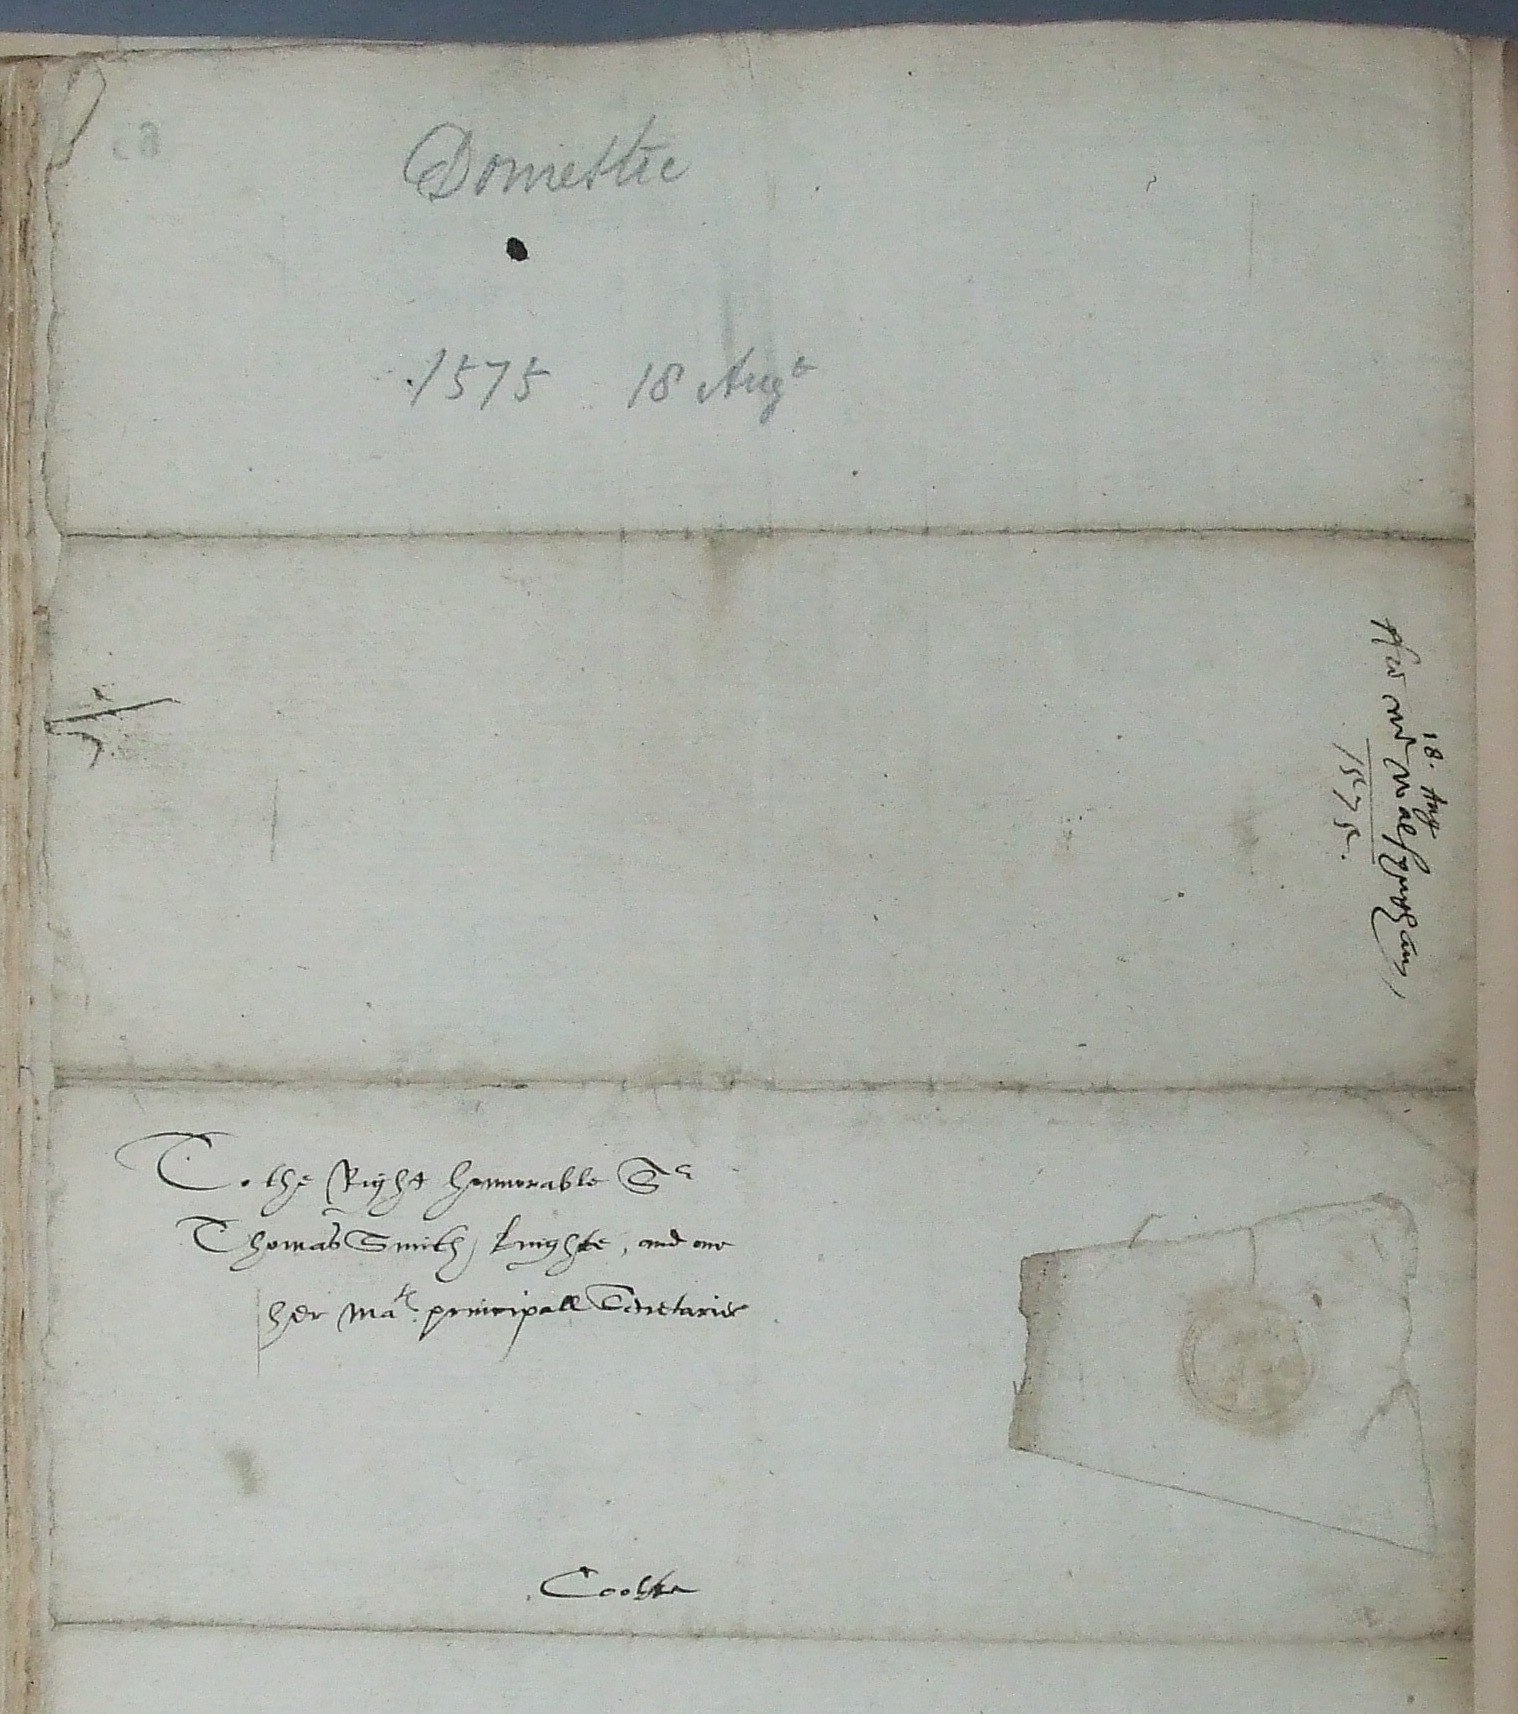 Domestic
1575 18 Augt
18. Aug
Mr Walsyngham
1575.
To the Right honnorable Sr
Thomas Smith knighte, and one
her Mats. principall Secretaries